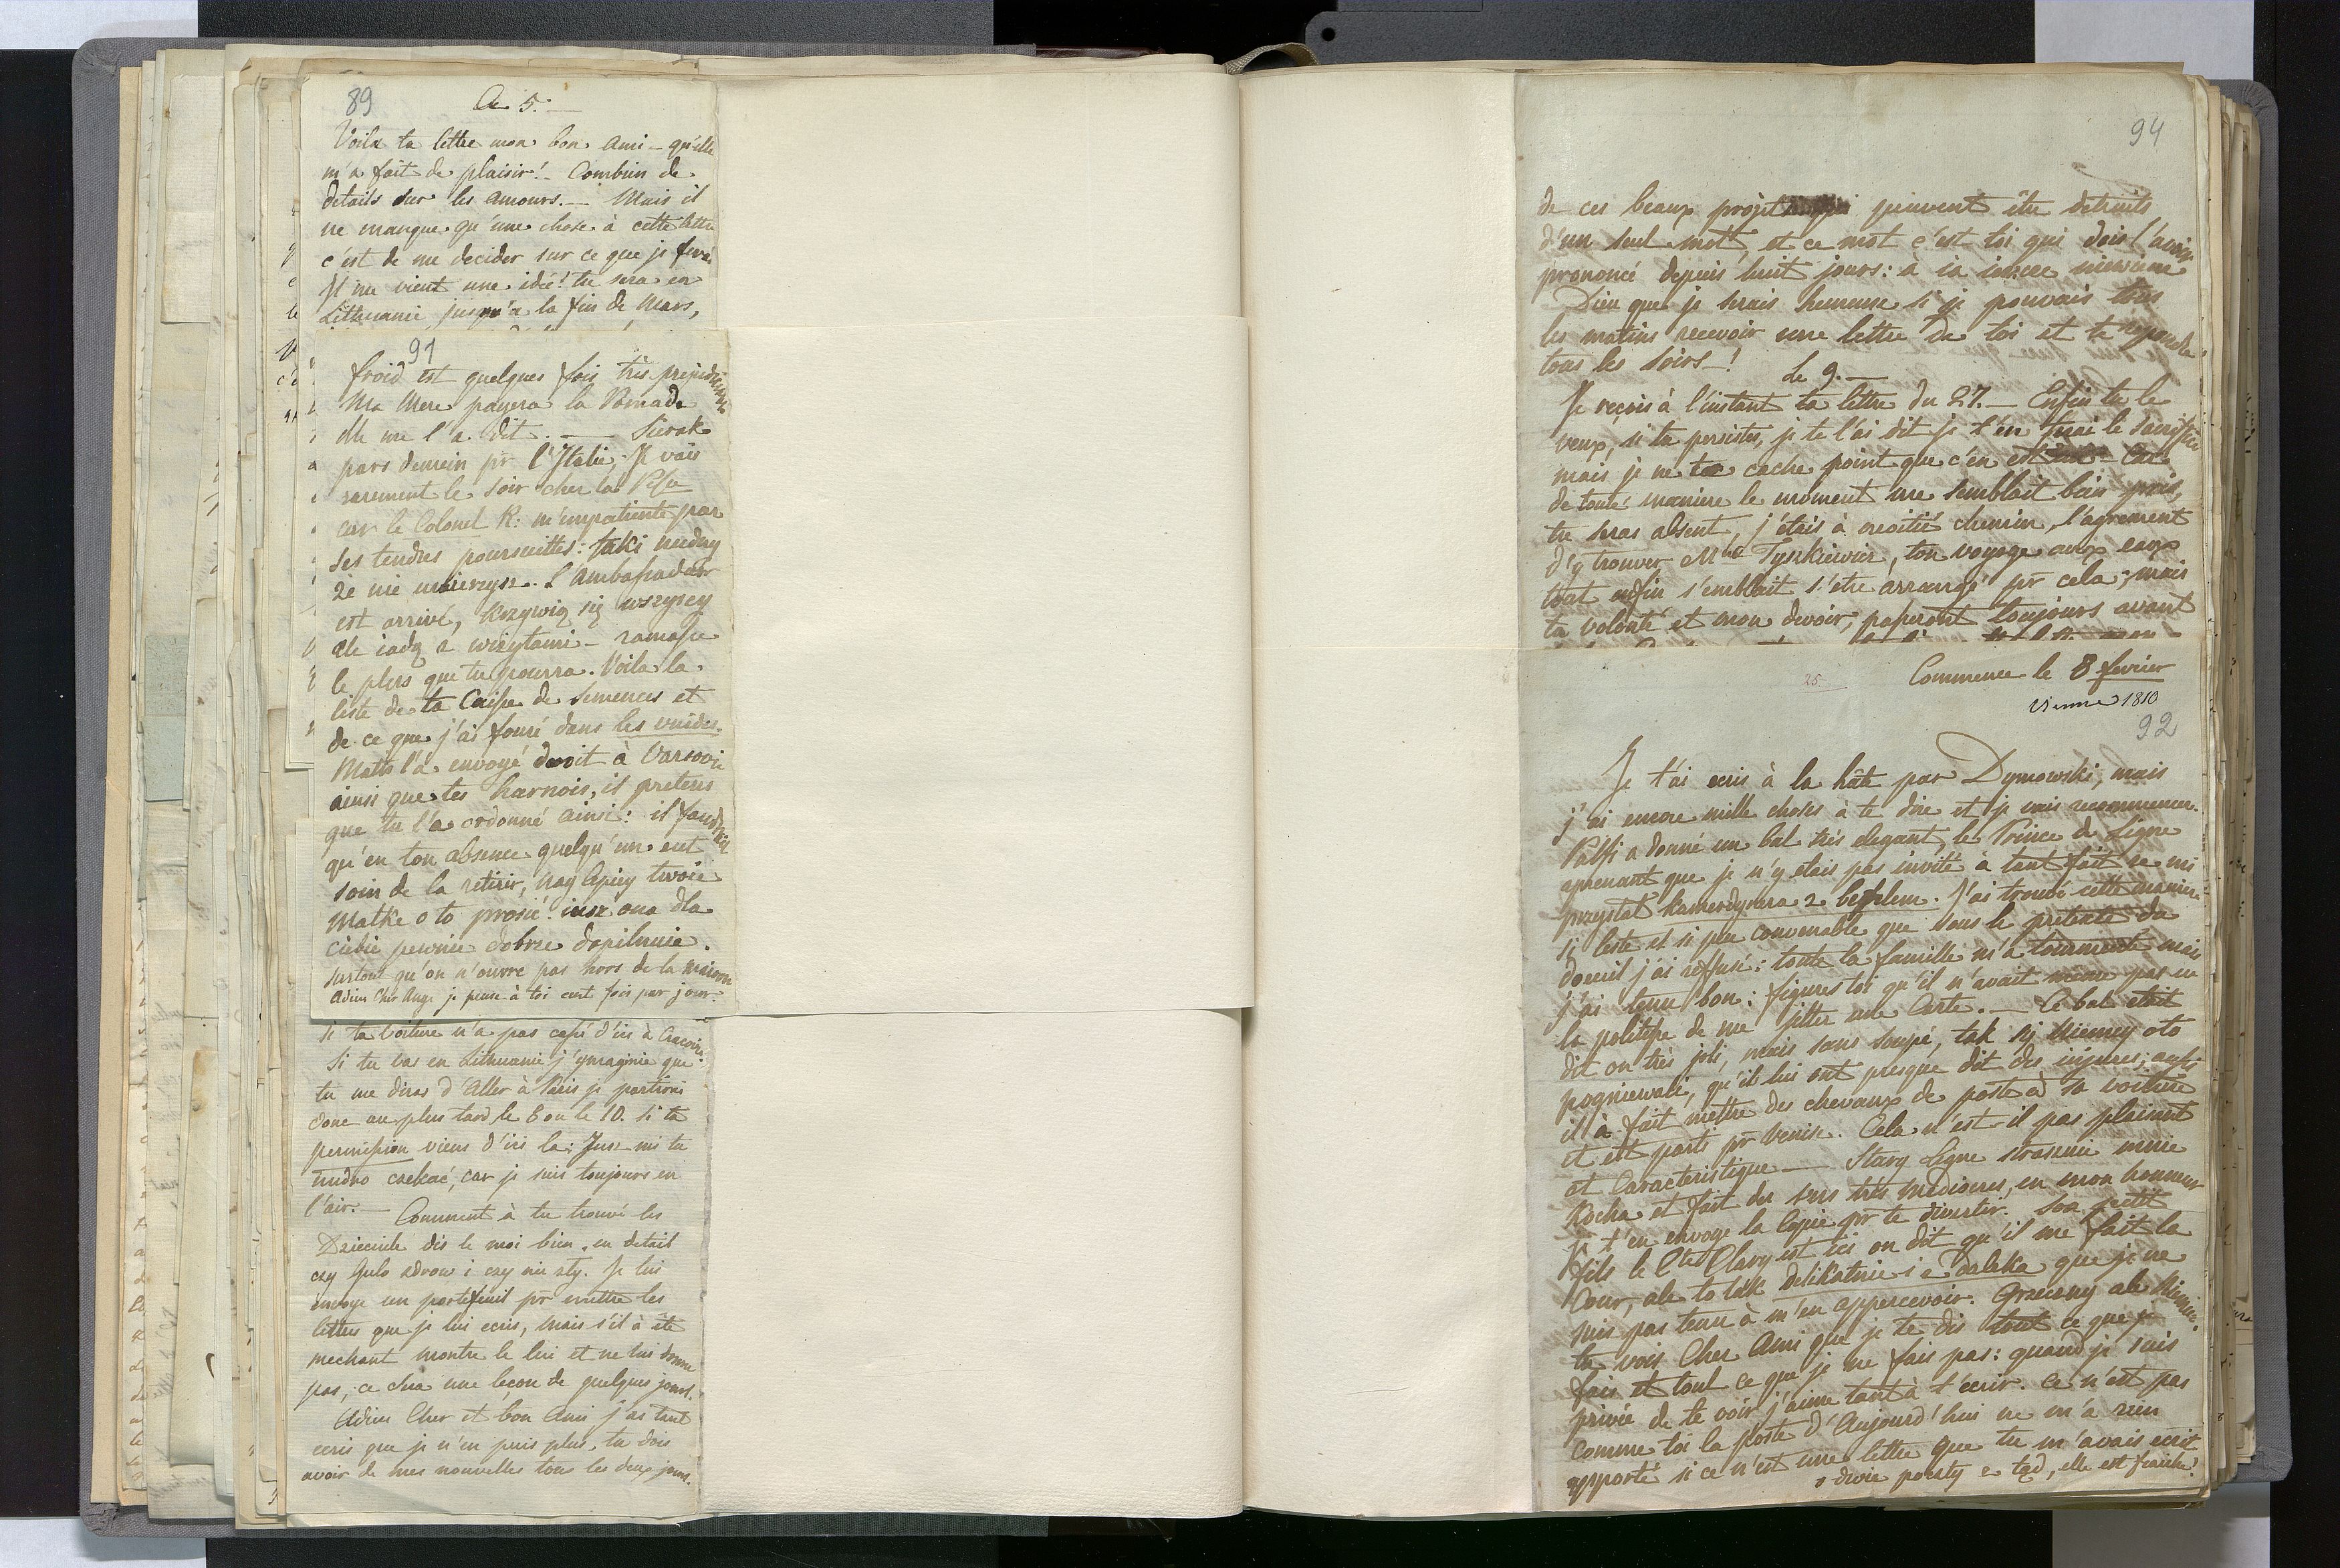 89
Ce 5.
Voila ta lettre mon bon Ami – qu'elle
m'a fait de plaisir! – Combien de
details sur les amours. — Mais il
ne manque qu'une chose à cette lettre
c'est de me decider sur ce que je ferai
Il me vient une idée! tu sera en
Lithuanie jusqu'a la fin de Mars,
91
froid est quelques fois très
Ma Mere payera la Pomade
elle me l'a dit. — Sierak
pars demein pr l'Italie, Je vais
rarement le soir cher la
car le Colonel R: m'impatiente par
ses tendres poursuittes: taki nudny
że nie uwierzysz. L'Ambassadeur
est arrivé, krzywią się wszyscy
ale iadą z wizytami – ramasse
le plus que tu pourra. Voila la
liste de ta Caisse de Semences et
de ce que j'ai fouré dans les vuides.
Matts l'a envoyé droit à Varsovie
ainsi que tes harnois, il pretens
que tu l'a ordonné ainsi: il faudrait
qu'en ton absence quelqu'un eut
soin de la retirer, nay lepiey twoie
Matke o to prosić. iusz ona dla
ciebie pewnie dobrze dopilnuie.
surtout qu'on n'ouvre pas hors de la maison
Adieu Cher Ange je pense à toi cent fois par jour.
si ta voiture n'a pas cassé d'ici à Cracovie.
Si tu vas en Lithuanie j'ymagine que
tu me diras d'aller à Paris je partirai
donc au plus tard le 8 ou le 10. si ta
permission viens d'ici la: Jusz mi tu
nudno czekać, car je suis toujours en
l'air. — Comment à tu trouvé les
Dzieciule dis le moi bien en detail
czy Gulo zdrow i czy nie zły. Je lui
envoye un portefeuil pr mettre les
lettres que je lui ecris, mais s'il à été
mechant montre le lui et ne lui donne
pas, ce sera une leçon de quelques jours.
Adieu Cher et bon Ami j'ai tant
ecris que je n'en puis plus, tu dois
avoir de mes nouvelles tous les deux jours.
94
de ces beaux projets qui peuvent être detruits
d'un seul mot, et ce mot c'est toi qui dois l'avoir
prononcé depuis huit jours: a ia ieszcze niewiem
Dieu que je serais heureuse si je pouvais tous
les matins recevoir une lettre de toi et te repondre
tous les soirs –!
Le 9. —
Je reçois à l'instant ta lettre du 27. — Enfin tu le
veux, si tu persistes, je te l'ai dit je t'en ferai le sacrifice
mais je ne te cache point que c'en est un – Car
de toute maniere le moment me semblait bien
tu seras absent, j'étais à moitié chemin, l'agrement
d'y trouver Mde Tyszkiewicz, ton voyage aux eaux
tout enfin semblait s'etre arrangé pr cela; mais
ta volonté et mon devoir, passeront toujours avant
25
Commence le 8 fevrier
Vienne 1810
92
Je t'ai ecris à la hâte par Dymowski, mais
j'ai encore mille choses à te dire et je vais recommencer.
Palfi a donné un bal très elegant, le Prince de Ligne
aprenant que je n'y etais pas invité a tant fait że mi
przysłał kamerdynera z biletem. J'ai trouvé cette maniere
si leste et si peu convenable que sous le pretexte du
doeuil j'ai reffusé: toute la famille m'a tourmenté mais
j'ai tenu bon: figures toi qu'il n'avait même pas eu
la politesse de me jetter une Carte. — Ce bal etait
dit on très joli, mais sans soupé, tak się Niemcy oto
pogniewali, qu'il lui ont presque dit des injures; aussi
il à fait mettre des chevaux de poste à sa voiture
et est parti pr Venise. Cela n'est-il pas plaisant
et Caracteristique — Stary Ligne strasznie mnie
Kocha et fait des vers très mediocres, en mon honneur
je t'en envoye la Copie pr te divertir. Son petit
fils le Cte Clary est ici on dit qu'il me fait la
Cour, ale to tak delikatnie i z daleka que je ne
suis pas tenu à m'en appercevoir. Grzeczny ale Niemiec.
tu vois Cher Ami que je te dis tout ce que je
fais et tout ce que je ne fais pas: quand je suis
privée de te voir j'aime tant à t'ecrir. Ce n'est pas
comme toi la poste d'Aujourd'hui ne m'a rien
apporté si ce n'est une lettre que tu m'avais ecrit
o dwie poczty z tąd, elle est fraiche!